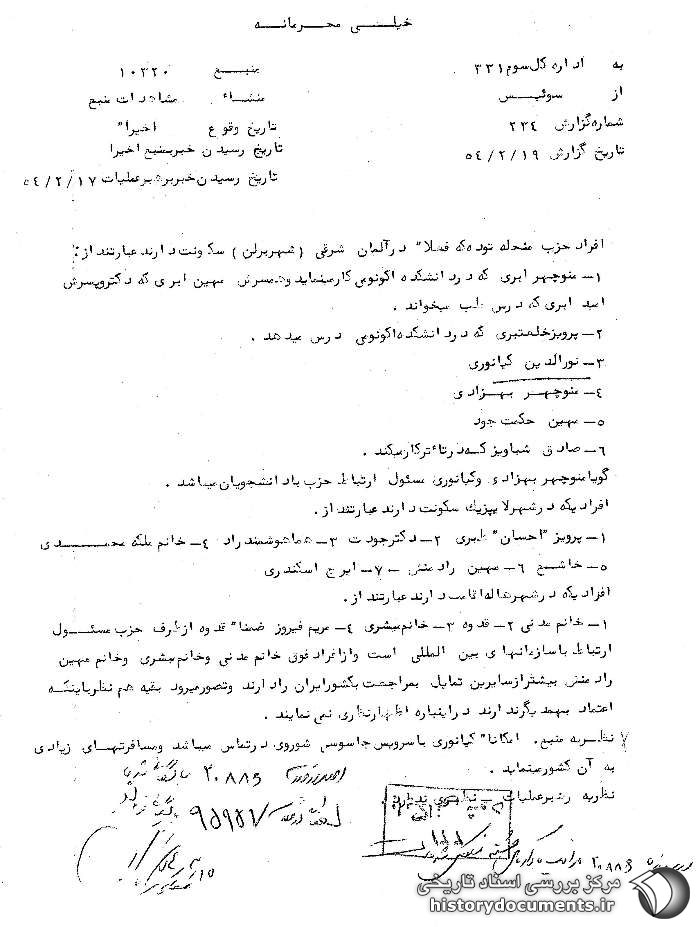 خیلـــی محـــرمانـــه
به اداره کل سوم ۳۳۱
از سوئیــس
شماره گزارش ۲۳۴
تاریخ گزارش ۵۴/۲/۱۹
منبـــع ۱۰۳۲۰
منشــاء مشاهدات منبع
تاریخ وقوع اخیرا"
تاریخ رسیدن خبر بمنبع اخیرا
تاریخ رسیدن خبر برهبر عملیات ۵۴/۲/۱۷
افراد حزب منحله توده که فعلا" در آلمان شرقی (شهر برلن) سکونت دارند عبارتند از:
۱- منوچهر ابری که در دانشکده اکونومی کار مینماید و همسرش مهین ابری که دکتر و پسرش
امید ابری که درس طب میخواند .
۲- پرویز خلعتبری که در دانشکده اکونومی درس میدهد .
۳- نورالدین کیانوری
۴- منوچهر بهزادی
۵- مهین حکمت جود
۶- صادق شباویز که در تاتر کار میکند .
گویا منوچهر بهزادی و کیانوری مسئول ارتباط حزب با دانشجویان میباشد .
افرادیکه در شهر لایپزیک سکونت دارند عبارتند از .
۱- پرویز "احسان" طبری ۲- دکتر جودت ۳- هما هوشمندراد ۴- خانم ملکه محمــدی
۵- خاشع ۶- مهین رادمنش - ۷- ایرج اسکندری
افرادیکه در شهر هاله اقامت دارند عبارتند از .
۱- خانم مدنی ۲- قدوه ۳- خانم مبشری ۴- مریم فیروز ضمنا" قدوه از طرف حزب مسئــول
ارتباط با سازمانهای بین المللی است و از افراد فوق خانم مدنی و خانم مبشری و خانم مهین
رادمنش بیشتر از سایرین تمایل بمراجعت بکشور ایران را دارند و تصور میرود بقیه هم نظر باینکه
اعتماد بهمدیگر ندارند در اینباره اظهار نظری نمی نمایند .
نظریه منبع . امکانا" کیانوری با سرویس جاسوسی شوروی در تماس میباشد و مسافرتهای زیادی
به آن کشور مینماید .
نظریه رهبر عملیات - نظری ندارد .
۲۰۸۸۵
۹۵۹۵۷
۲۰۸۸۵
مرکز بررسی اسناد تاریخی
historydocuments.ir